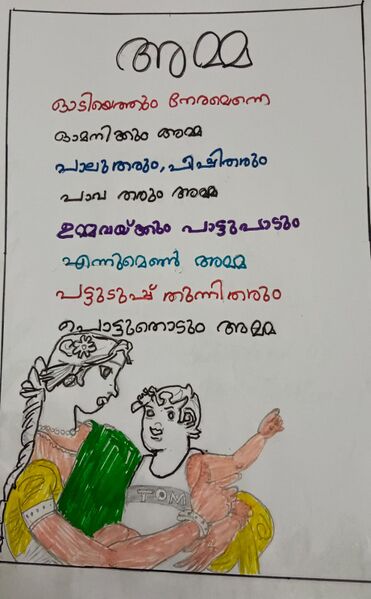 അമ്മ
ഓടിയെത്തും നേരമെന്നെ
ഓമനിക്കും അമ്മ
പാലു തരും, പീപ്പിതരും
പാവ തരും അമ്മ
ഉമ്മവയ്ക്കും പാട്ടുപാടും
എന്നുമെൺ അമ്മ
പട്ടുടുപ്പ് തുന്നിതരും
പൊട്ടുതൊടും അമ്മ
TOM